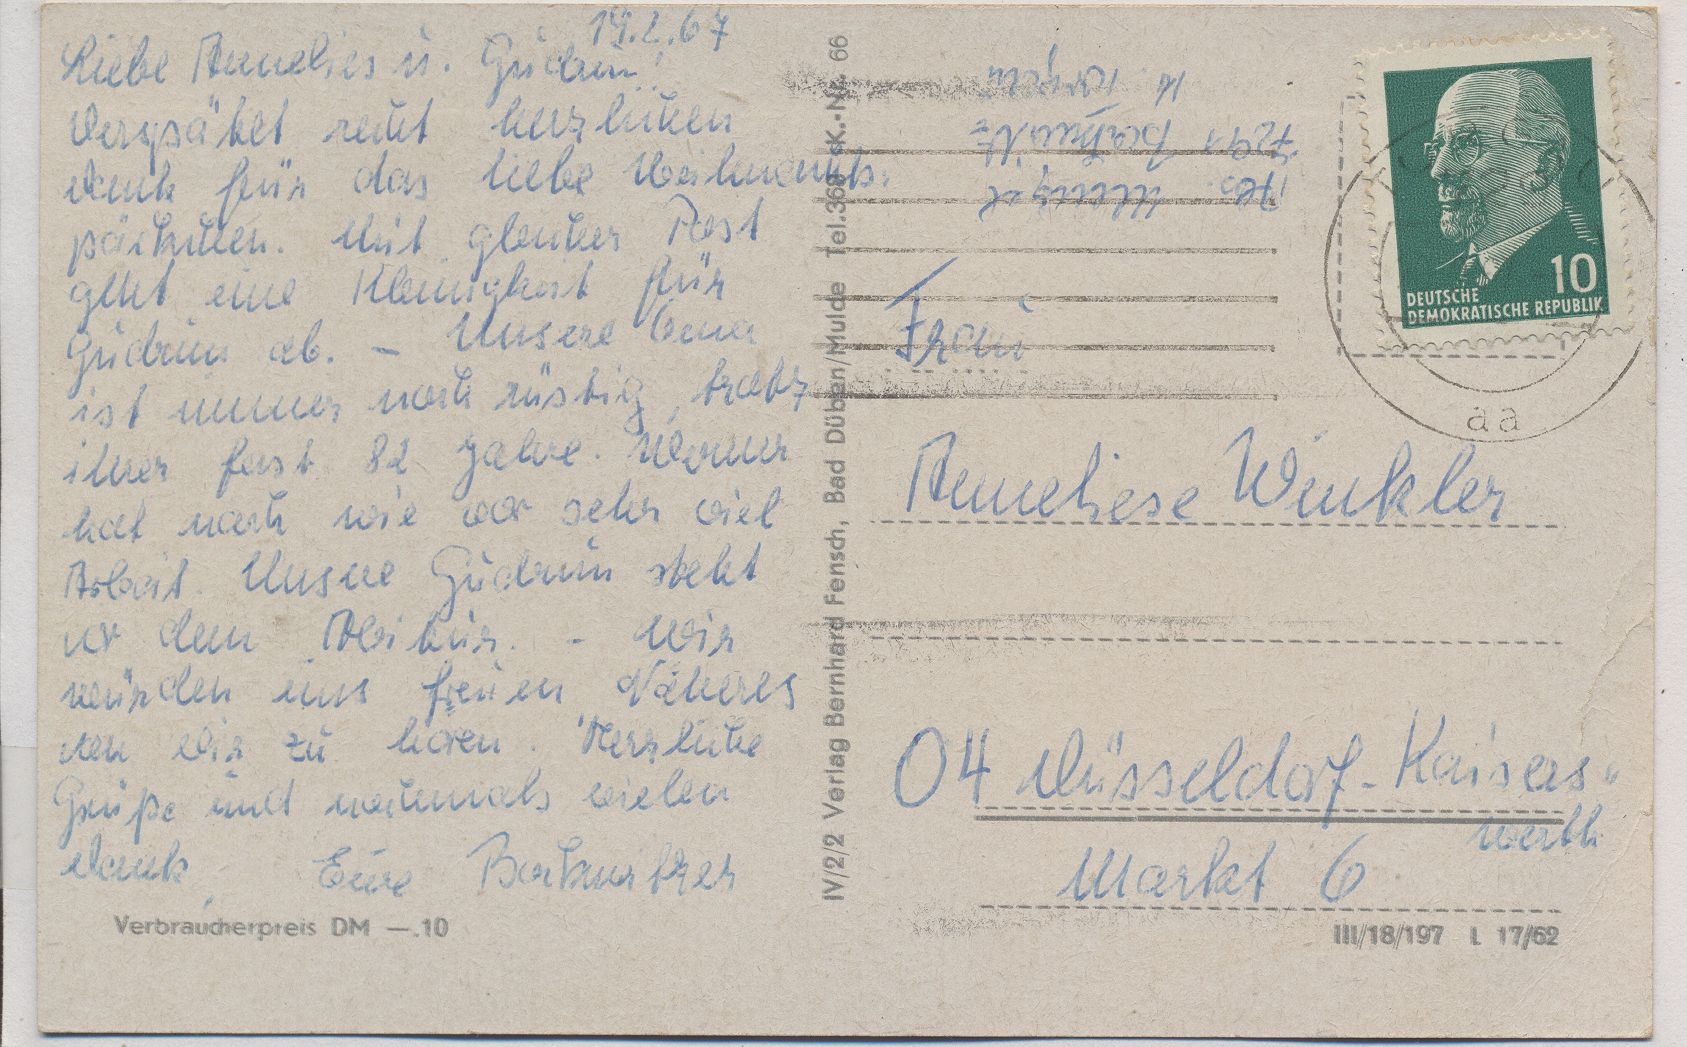 14.2.67
Liebe Annelies u. Gudrun!
Verspätet recht herzlichen
Dank für das liebe Weihnachts-
päckchen. Mit gleicher Post
geht eine Kleinigkeit für
Gudrun ab. – Unsere Oma
ist immer noch rüstig, trotz
ihrer fast 82 Jahre. Werner
hat nach wie vor sehr viel
Arbeit. Unsre Gudrun steht
vor dem Abitur. – Wir
würden uns freuen Näheres
von Dir zu hören. Herzliche
Grüße und nochmals vielen
Dank Eure Bocknitzer
Verbraucherpreis DM —.10
IV/2/2 Verlag Bernhard Fensch, Bad Düben/Mulde Tel.368 K.-Nr. 66
Abs.
7291
DEUTSCHE
DEMOKRATISCHE REPUBLIK
10
aa
Frau
Anneliese Winkler
04 Düsseldorf-Kaisers"
werth
Markt 6
III/18/197 L 17/62